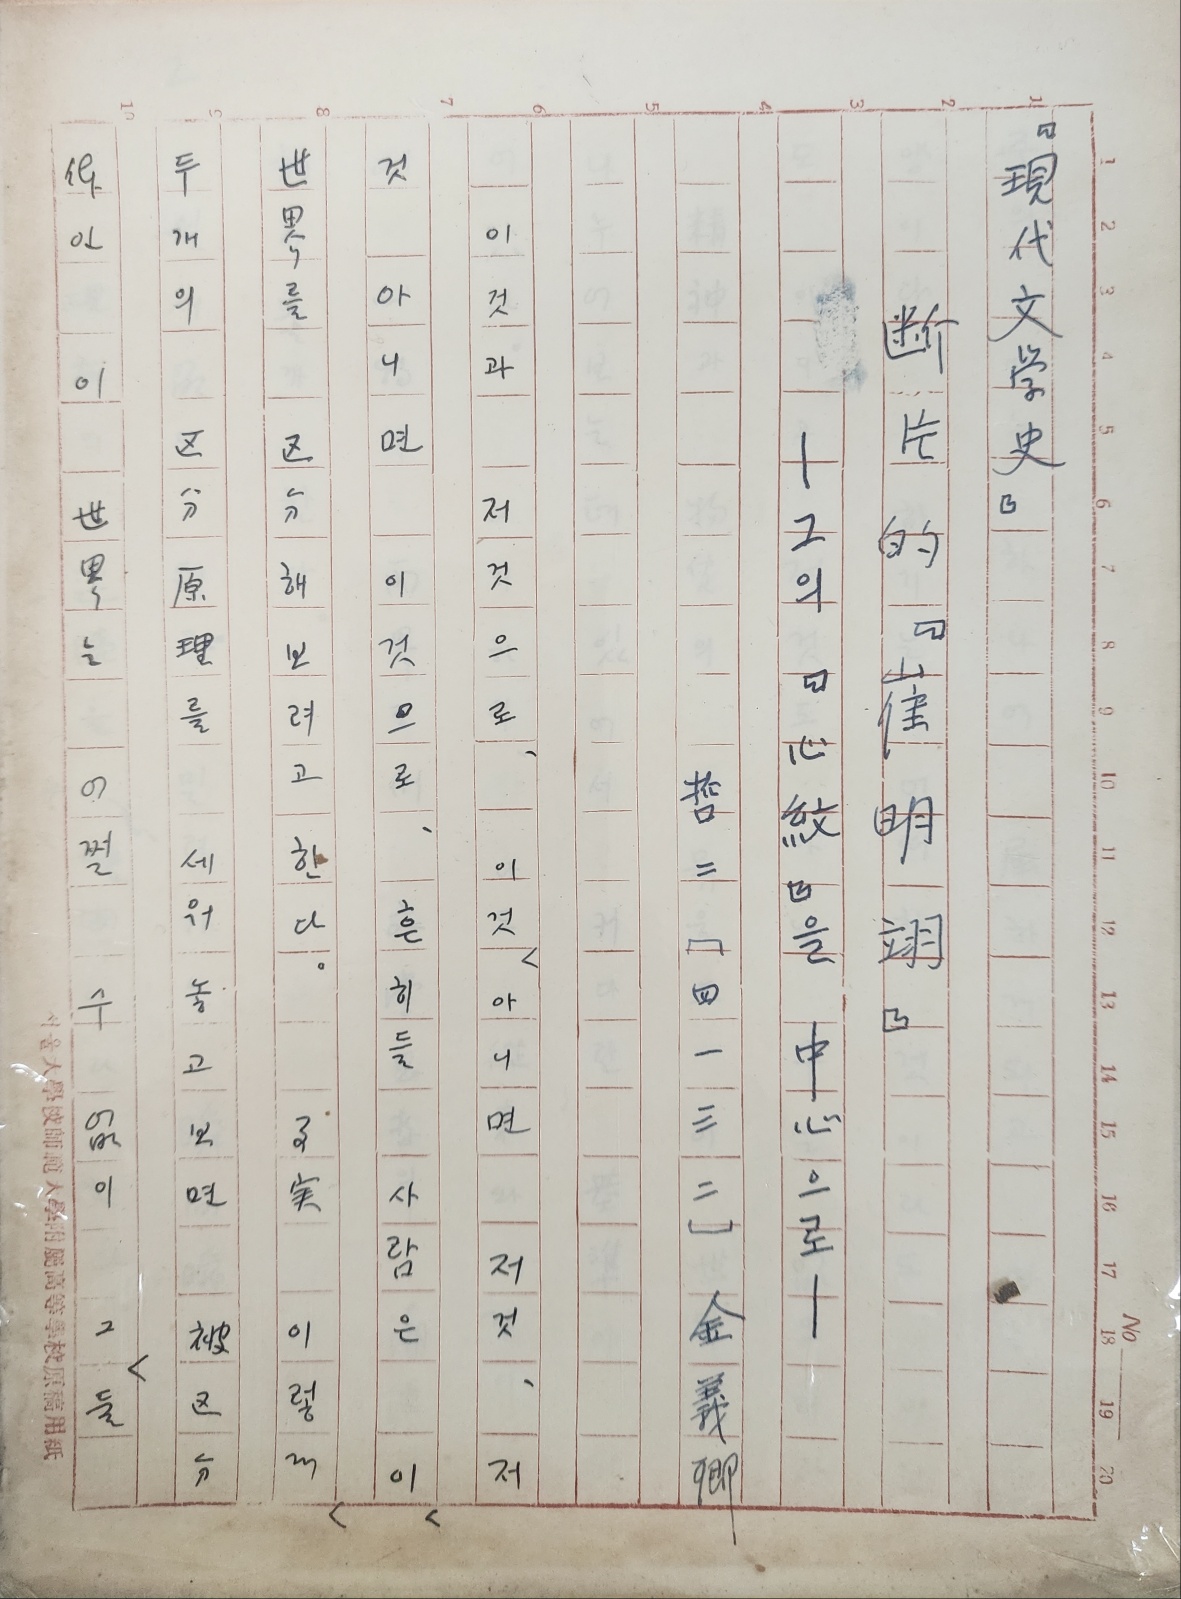 No
1 2 3 4 5 6 7 8 9 10
1 2 3 4 5 6 7 8 9 10 11 12 13 14 15 16 17 18 19 20
『現代文学史』
断片的『崔明翊』
—그의『心紋』을 中心으로—
哲二[四一三二] 金義卿
이것과 저것으로、 이것 아니면 저것、 저
것 아니면 이것으로、 흔히들 사람은 이
世界를 区分해보려고 한다。 事実 이렇게
두개의 区分原理를 세워 놓고 보면 被区分
体인 이 世界는 어쩔 수 없이 그들
서울大學校師範大學附屬高等學校原稿用紙